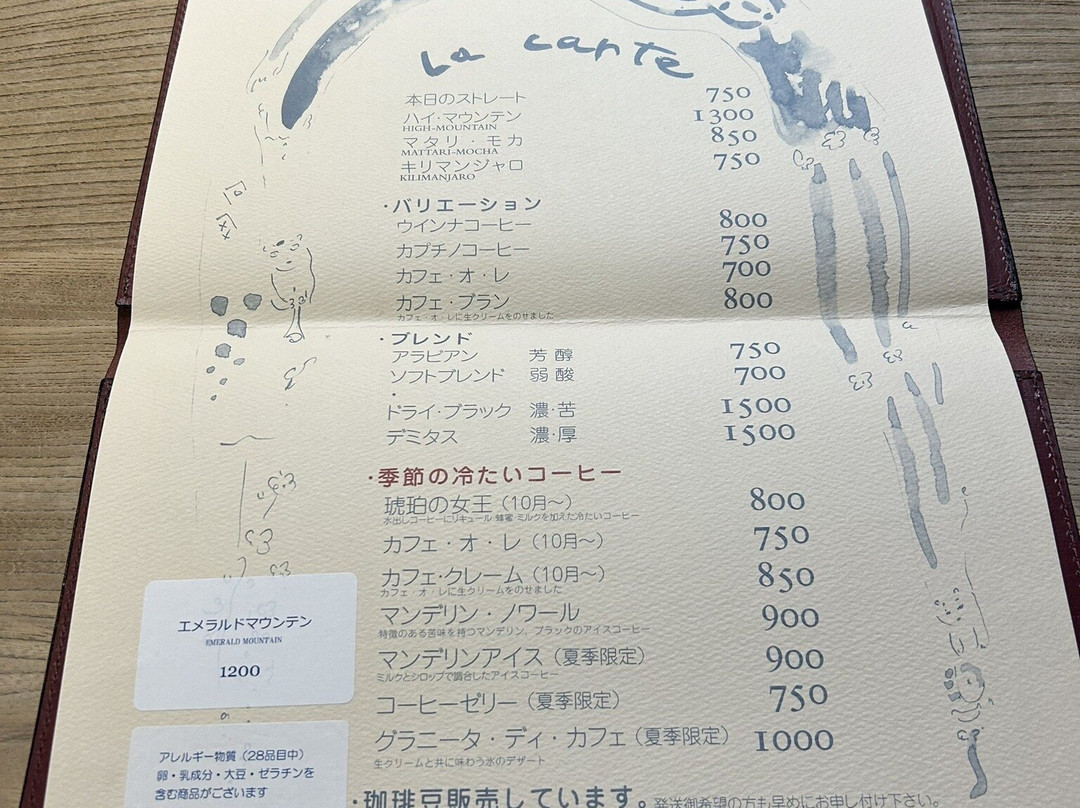 La carte
本日のストレート 750
ハイ・マウンテン 1300
HIGH-MOUNTAIN
マタリ・モカ 850
MATTARI-MOCHA
キリマンジャロ 750
KILIMANJARO
・バリエーション
ウインナコーヒー 800
カプチノコーヒー 750
カフェ・オ・レ 700
カフェ・ブラン 800
カフェ・オ・レに生クリームをのせました
・ブレンド
アラビアン 芳醇 750
ソフトブレンド 弱酸 700
ドライ・ブラック 濃・苦 1500
デミタス 濃・厚 1500
・季節の冷たいコーヒー
琥珀の女王（10月〜） 800
水出しコーヒーにリキュール・蜂蜜・ミルクを加えた冷たいコーヒー
カフェ・オ・レ（10月〜） 750
カフェ・クレーム（10月〜） 850
カフェ・オ・レに生クリームをのせました
マンデリン・ノワール 900
特徴のある苦味を持つマンデリン、ブラックのアイスコーヒー
マンデリンアイス（夏季限定） 900
ミルクとシロップで調合したアイスコーヒー
コーヒーゼリー（夏季限定） 750
グラニータ・ディ・カフェ（夏季限定） 1000
生クリームと共に味わう氷のデザート
・珈琲豆販売しています。発送御希望の方も早めにお申し付け下さい。
エメラルドマウンテン
EMERALD MOUNTAIN
1200
アレルギー物質（28品目中）
卵・乳成分・大豆・ゼラチンを
含む商品がございます